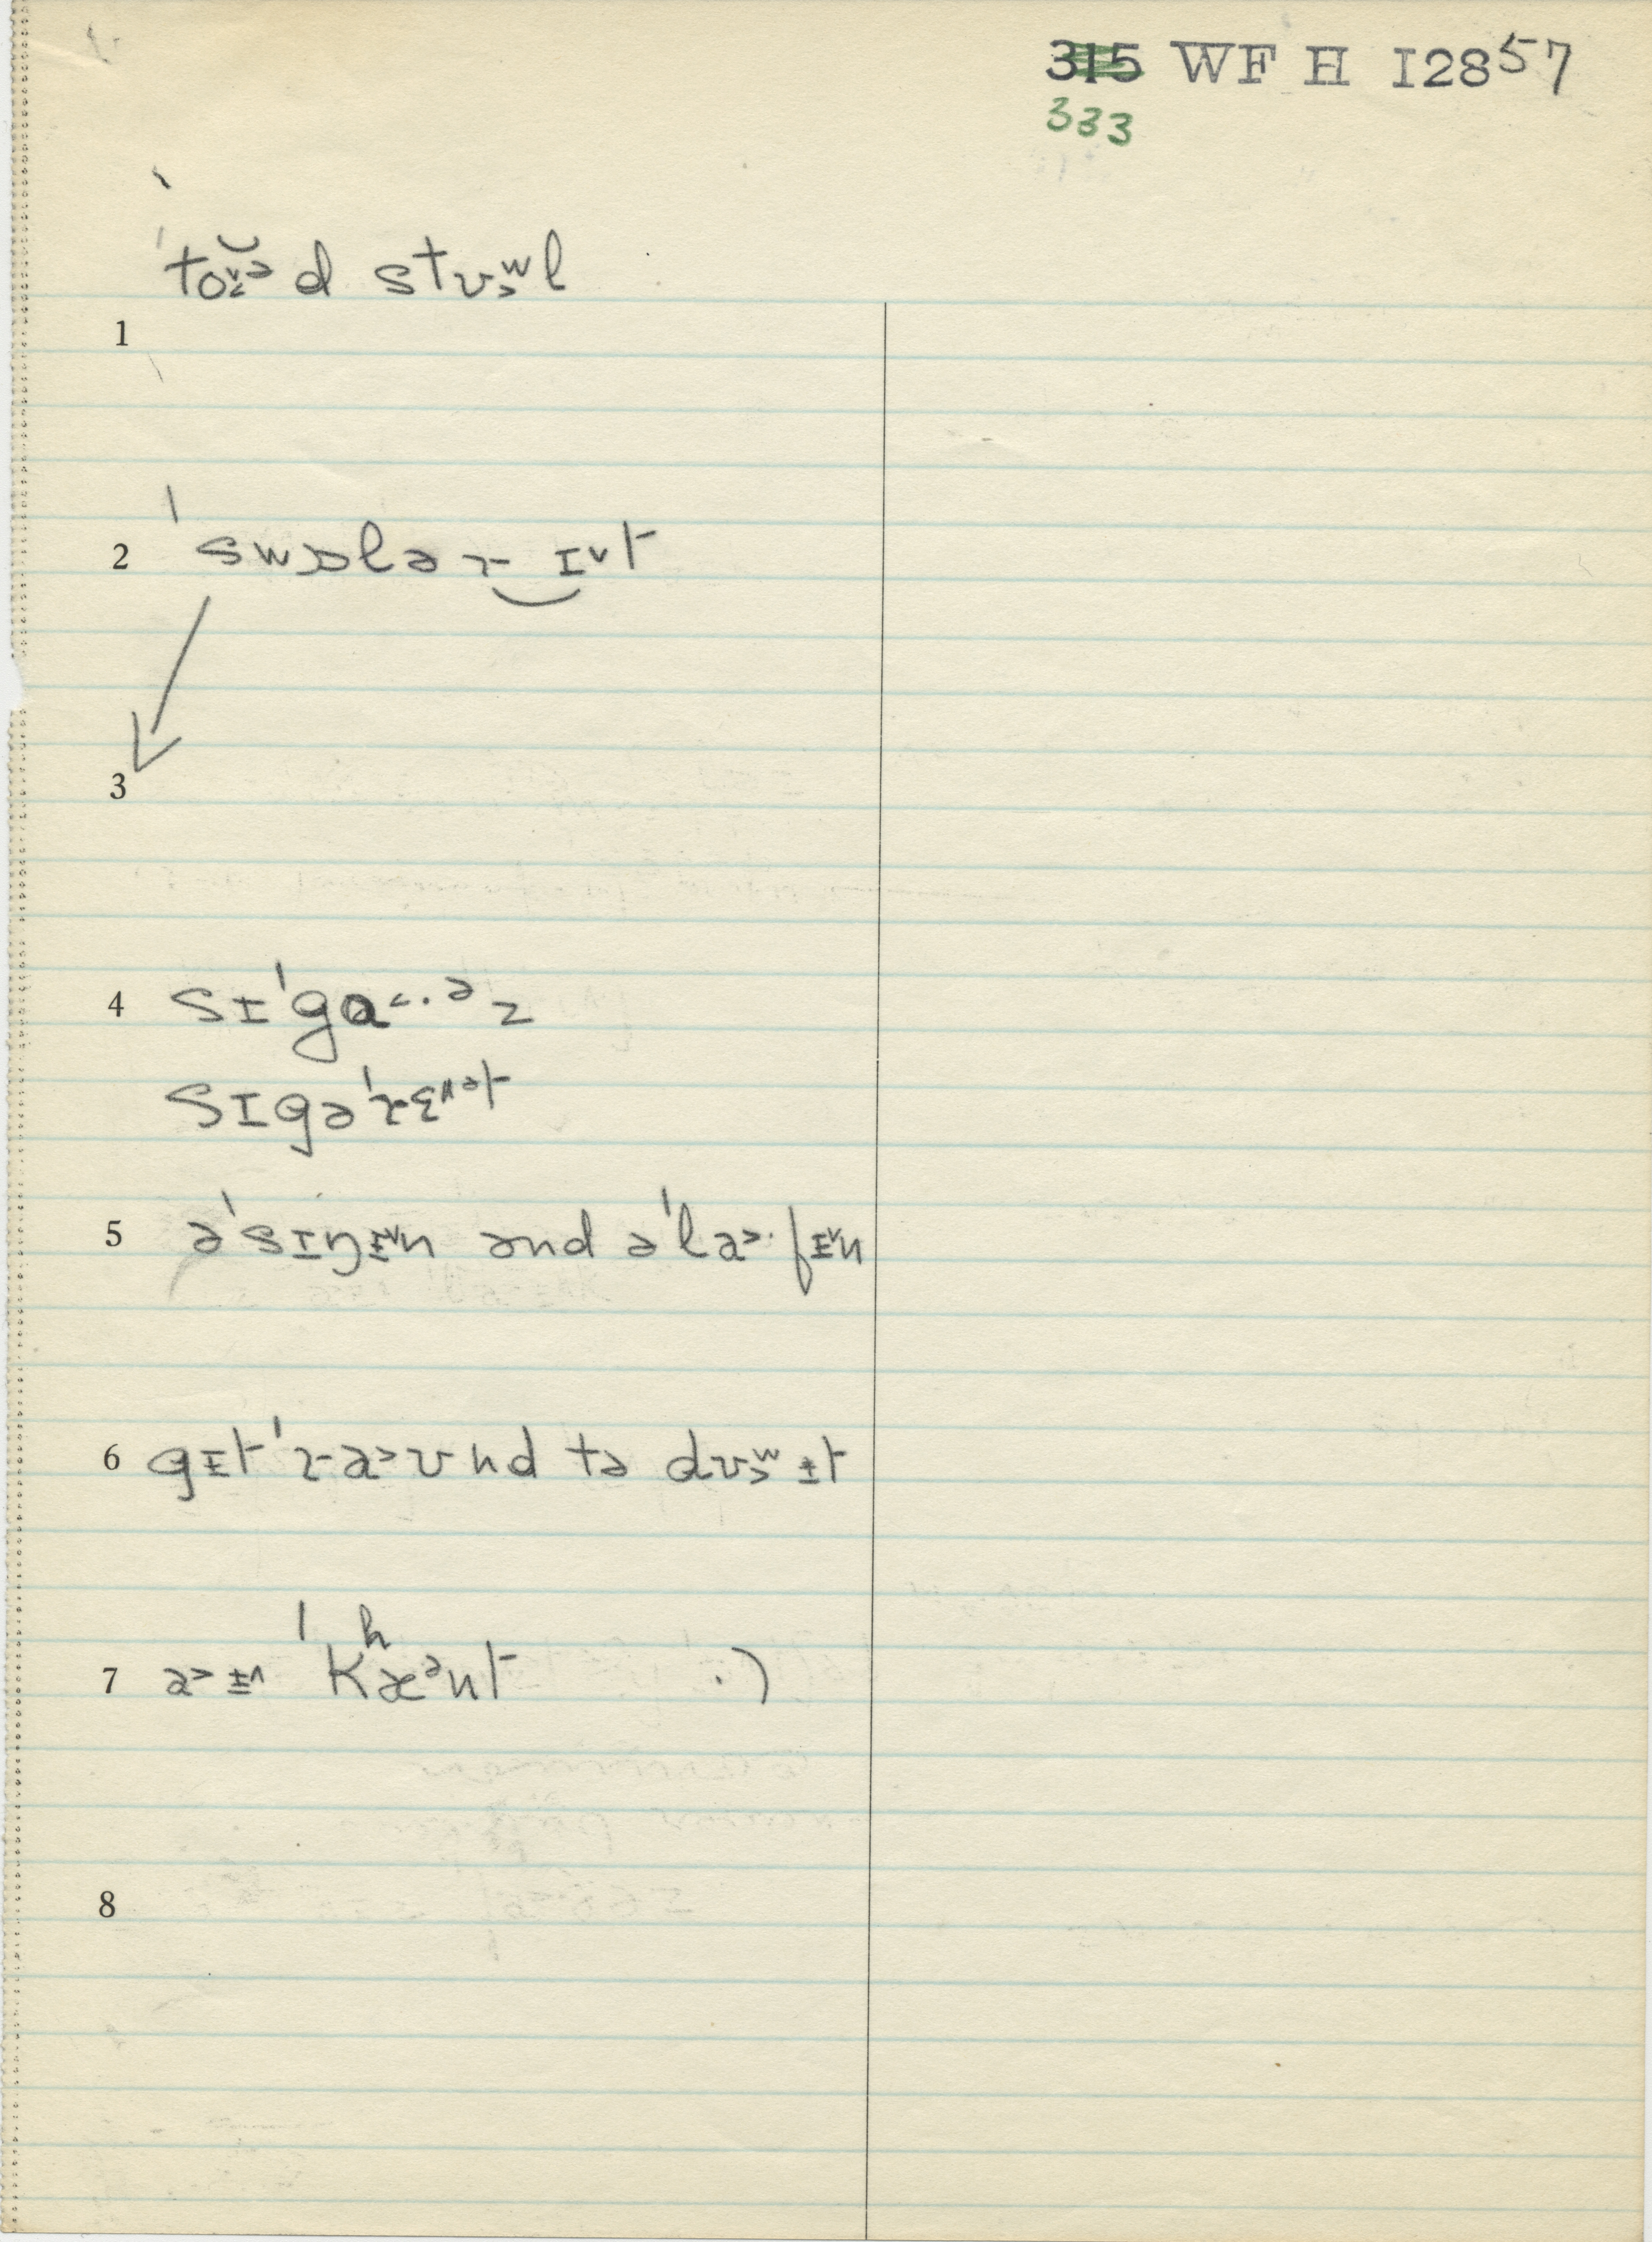 315 WF H I2857
333
ˈtoˇəd stʊ˃ʷl
1
2 ˈswɒləɹ‿ɪ˅t
3
4 sɪˈgɑ˂·ᵊz
sɪgəˈɹɛ˄ᵊt
5 əˈsɪŋɨ˅n ənd əˈla˃·fɨ˅n
6 gɨtˈɹa˃ʊnd tə dʊ˃ʷɨt
7 a˃ɨ˄ ˈkʰæᵊnt ·)
8